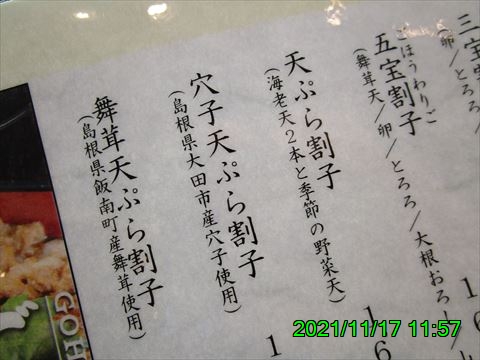 三宝割子
(卵/とろろ/
ごほうわりご
五宝割子
(舞茸天/卵/とろろ/大根おろし/
16
天ぷら割子
(海老天2本と季節の野菜天)
16
穴子天ぷら割子
(島根県大田市産穴子使用)
1
舞茸天ぷら割子
(島根県飯南町産舞茸使用)
GOH
2021/11/17 11:57